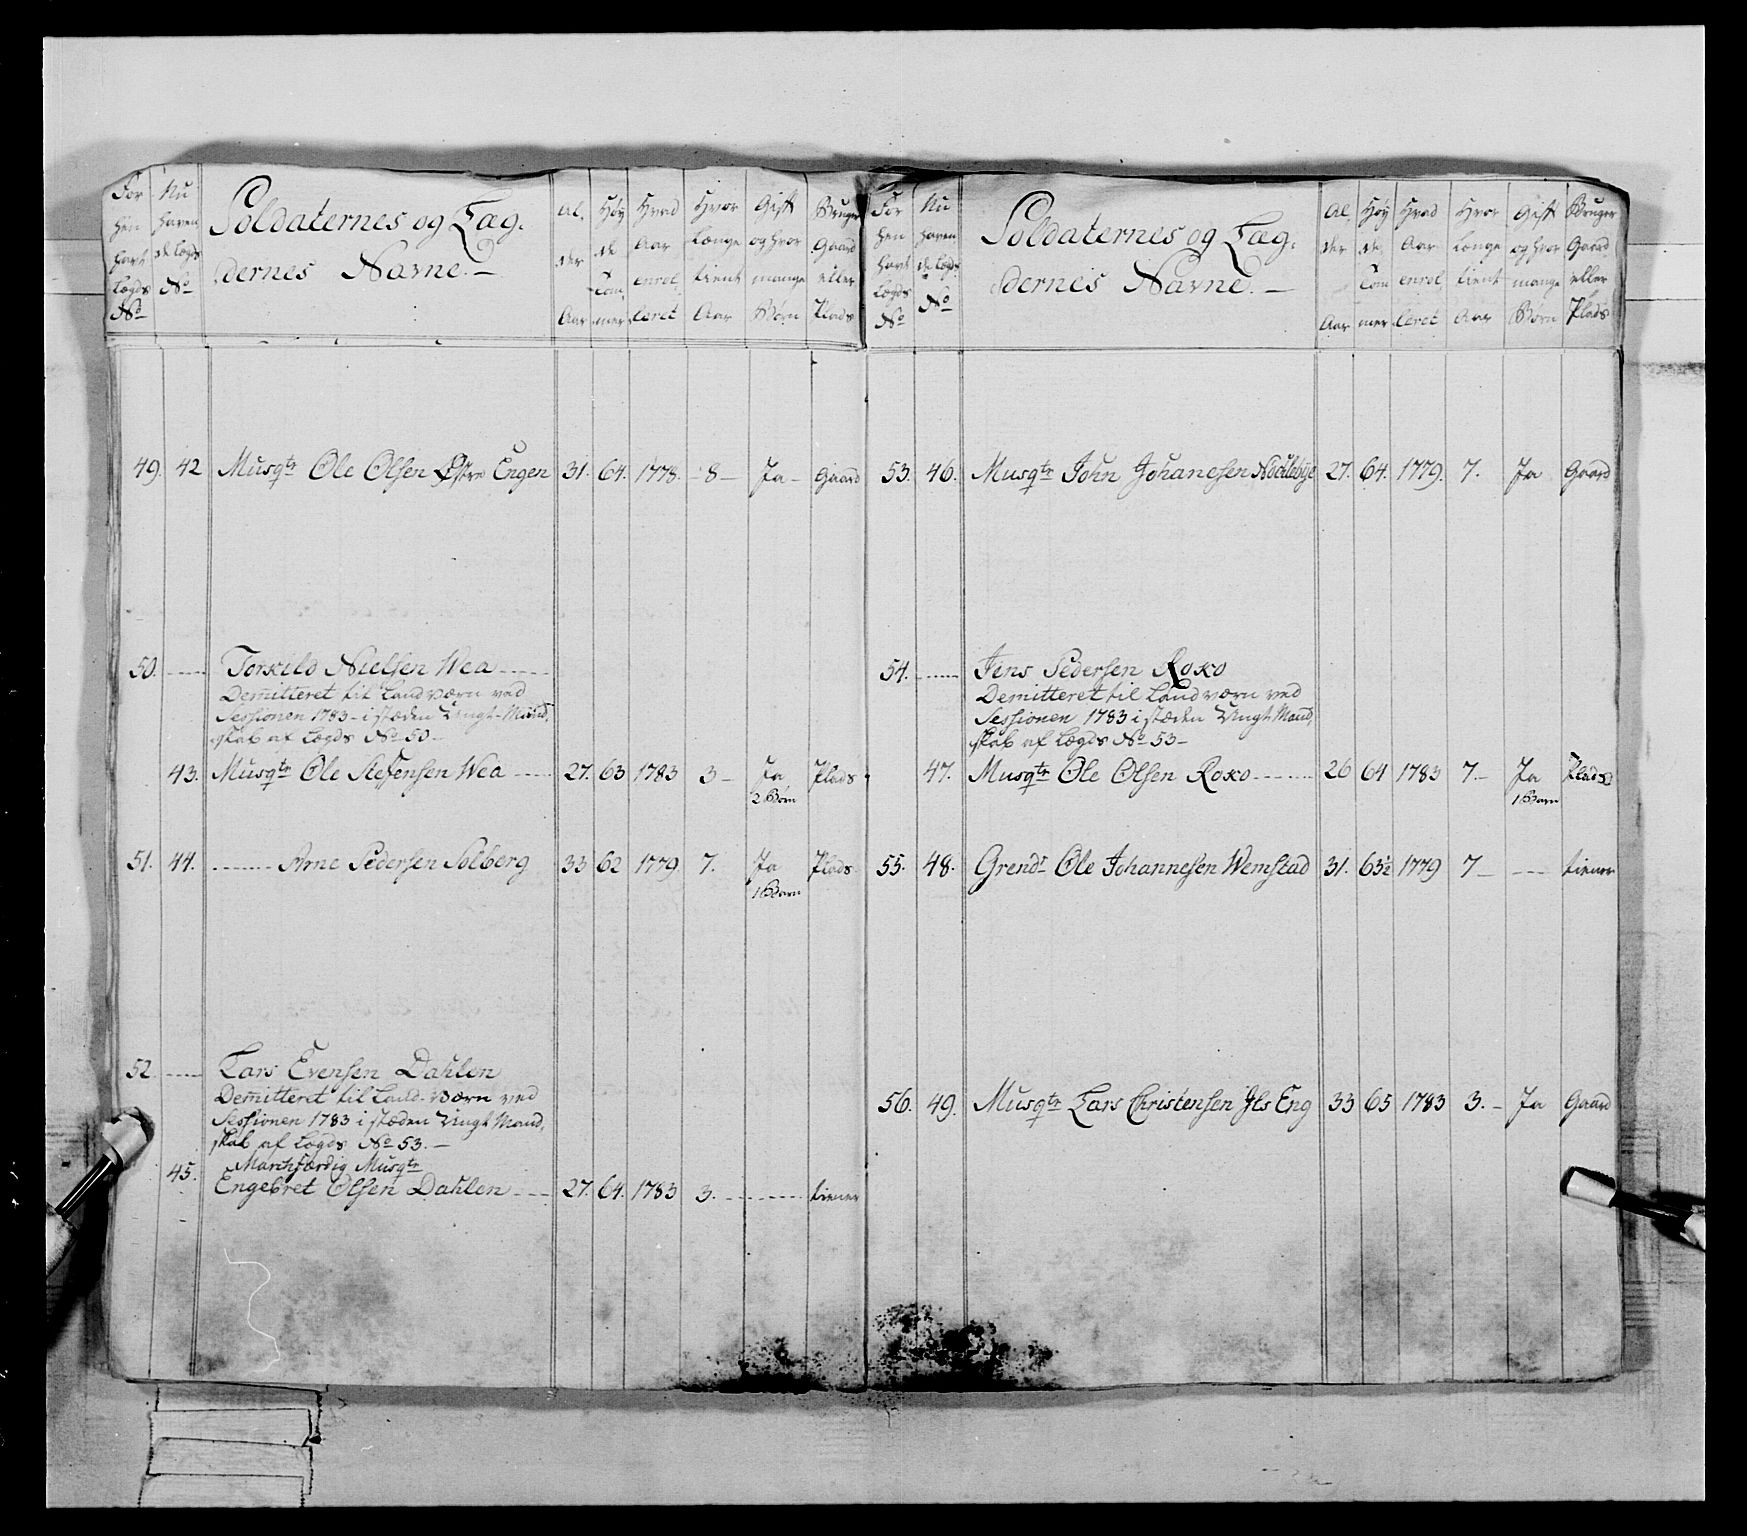 For hen havt Lægds No | Nu haven de Lægds No | Soldaternes og Læg- dernes Navne.— | Al, der Aar | Høy de Tom, mer | Hvad Aar enrol, leret | Hvor Længe tient Aar | Gift og hvor mange Børn | Bruger Gaard eller Plads
49. 42 Musqtr Ole Olsen Østre Engen 31. 64. 1778. – 8 – Ja – Gaard
50. ------ Torkild Nielsen Wea -----
Demitteret til Landværn ved
Sessionen 1783 – i stæden Ungt-Mand,
skab af Lægds No 50 –
43. Musqtr Ole Steffensen Wea ---- 27. 63 1783 3 – Ja Plads
2 Børn
51. 44. -------- Arne Pedersen Solberg 33 62 1779 7. Ja Plads
1 Barn
52. ----- Lars Evensen Dahlen
Demitteret til Land-værn ved
Sessionen 1783 i stæden Ungt Mand,
skab af Lægds No 53. –
Marchfærdig Musqtr
45. Engebret Olsen Dahlen --- 27. 64. 1783 3. -------- tiener
For hen havt Lægds No | Nu haven de Lægds No | Soldaternes og Læg- dernes Navne. — | Al, der Aar | Høy de Tom mer | Hvad Aar enrol, leret | Hvor Længe tient Aar | Gift og hvor mange Børn | Bruger Gaard eller Plads
53. 46. Musqtr John Johanesen 27. 64. 1779. 7. Ja Gaard
54. ------ Jens Pedersen Roxo
Demitteret til Landværn ved
Sessionen 1783 i stæden Ungt Mand,
skab af Lægds No 53 –
47. Musqtr Ole Olsen Roxo ------- 26 64 1783 7. – Ja Plads
1 Barn
55. 48. Grendr Ole Johannesen Wemstad 31. 63½ 1779 7 – --- tiener
56. 49. Musqtr Lars Christensen Jls Eng 33 65 1783 3. – Ja Gaard